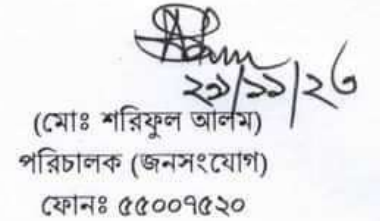 ২৯/১১/২৩
(মোঃ শরিফুল আলম)
পরিচালক (জনসংযোগ)
ফোনঃ ৫৫০০৭৫২০